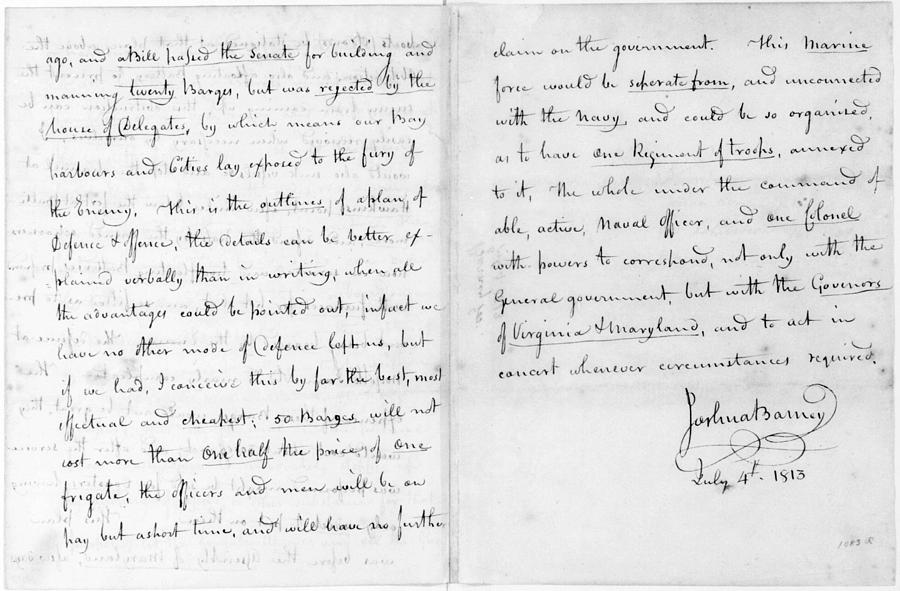 ago, and a Bill passed the Senate for building and
manning twenty Barges, but was rejected by the
house of Delegates, by which means our Bay
harbours and Cities lay exposed to the fury of
the Enemy. This is the outlines of a plan, of
Defence & offence, the details can be better ex-
plained verbally than in writing, when all
the advantages could be pointed out, infact we
have no other mode of Defence left us, but
if we had, I conceive this by far the best, most
effectual and cheapest; 50 Barges will not
cost more than one half the price of one
frigate, the officers and men will be on
pay but a short time, and will have no further
claim on the government. This Marine
force would be seherate from, and unconnected
with the Navy, and could be so organised,
as to have one Regiment of troops, annexed
to it, The whole under the command of
able, active, Naval Officer, and one Colonel
with powers to correspond, not only with the
General government, but with the Govenors
of Virginia & Maryland, and to act in
concert whenever circumstances required.
Joshua Barney
July 4th. 1813